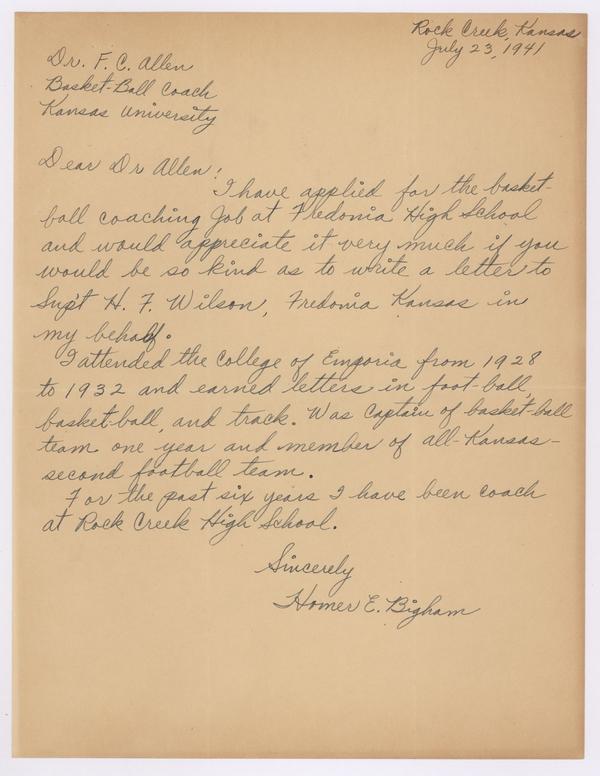 Rock Creek, Kansas
July 23, 1941
Dr. F. C. Allen
Basket-Ball Coach
Kansas University
Dear Dr Allen:
I have applied for the basket-
ball coaching Job at Fredonia High School
and would appreciate it very much if you
would be so kind as to write a letter to
Sup't H. F. Wilson, Fredonia Kansas in
my behalf.
I attended the College of Emporia from 1928
to 1932 and earned letters in foot-ball,
basket-ball, and track. Was Captain of basket-ball
team one year and member of all-Kansas-
second football team.
For the past six years I have been coach
at Rock Creek High School.
Sincerely
Homer E. Bigham